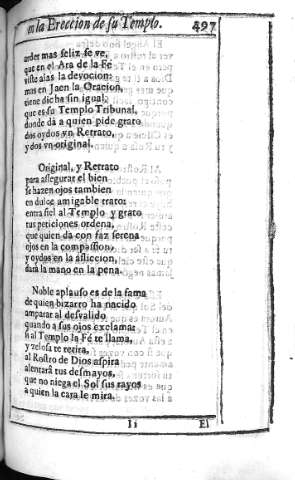 en la Ereccion de su Templo. 497
arder mas feliz se ve,
que en el Ara de la Fè
viste alas la devocion:
mas en Jaen la Oracion,
tiene dicha sin igual;
que es su Templo Tribunal,
donde dà a quien pide grato
dos oydos vn Retrato,
y dos vn original.
Original, y Retrato
para assegurar el bien
se hazen ojos tambien
en dulce amigable trato:
entra fiel al Templo y grato
tus peticiones ordena,
que quien da con faz serena
ojos en la compassion,
y oydos en la afliccion,
darà la mano en la pena.
Noble aplauso es de la fama
de quien bizarro ha nacido
amparar al desvalido
quando a sus ojos exclama:
si al Templo la Fè te llama,
y zelosa te retira,
al Rostro de Dios aspira
alentarà tus desmayos,
que no niega el Sol sus rayos
a quien la cara le mira.
Ii El